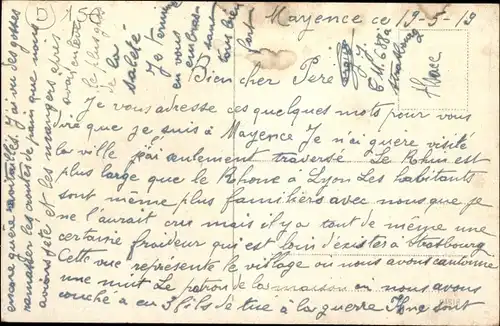 Mayence ce 19-5-19
Bien cher Père
Je vous adresse ces quelques mots pour vous
dire que je suis à Mayence Je n'ai guère visité
la ville j'ai seulement traversé. Le Rhin est
plus large que le Rhone à Lyon Les habitants
sont même plus familiers avec nous que je
ne l'aurait cru mais il y a tout de même une
certaine froideur qui est loin d'exister à Strasbourg
Cette vue représente le village ou nous avons cantonné
une nuit Le patron de la maison ou nous avons
couché a eu 3 fils de tué à la guerre
sont
encore guère ravitaillés J'ai vu des gosses
ramasser les croutes de pain que nous
avions jeté et les manger après
avoir enlevé
le plus gros
de la
saleté
Je termine
en vous
embrassant
tous bien
fort
Strasbourg
Alsace
D 158